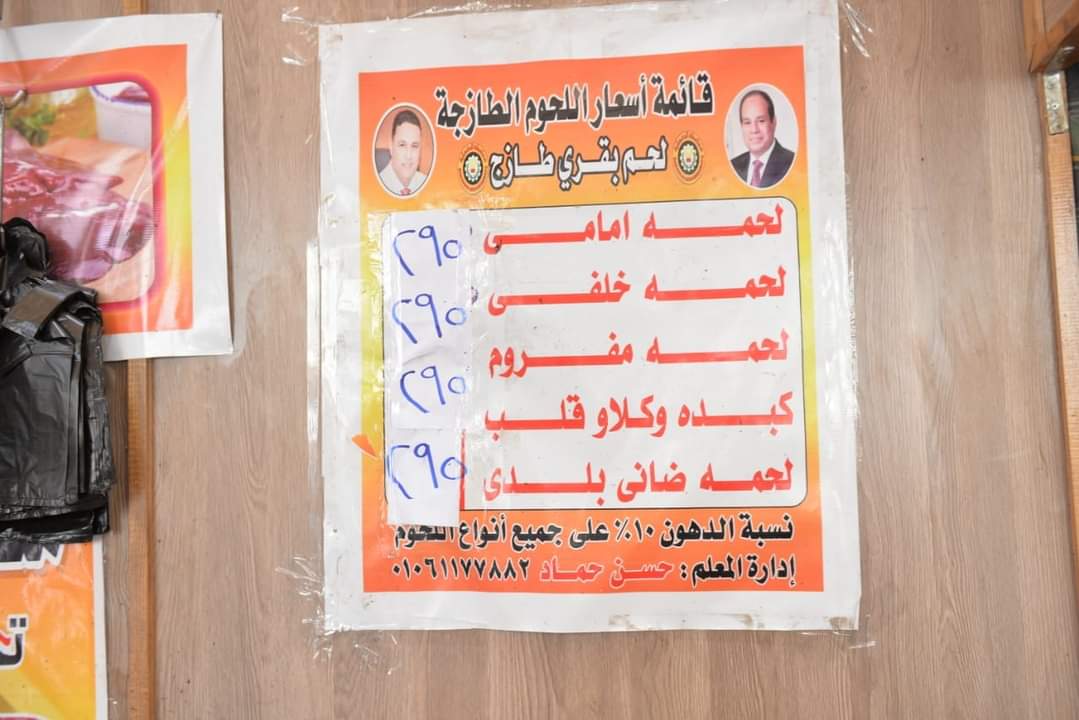 قائمة أسعار اللحوم الطازجة
لحم بقري طازج
لحمــه امامــى ٢٩٥
لحمــه خلفــى ٢٩٥
لحمــه مفــروم ٢٩٥
كبــده وكــلاو قلــب
لحمــه ضانى بلــدى ٢٩٥
نسبة الدهون ١٠٪ على جميع أنواع اللحوم
إدارة المعلم : حسن حمــاد ٠١٠٦١١٧٧٨٨٢